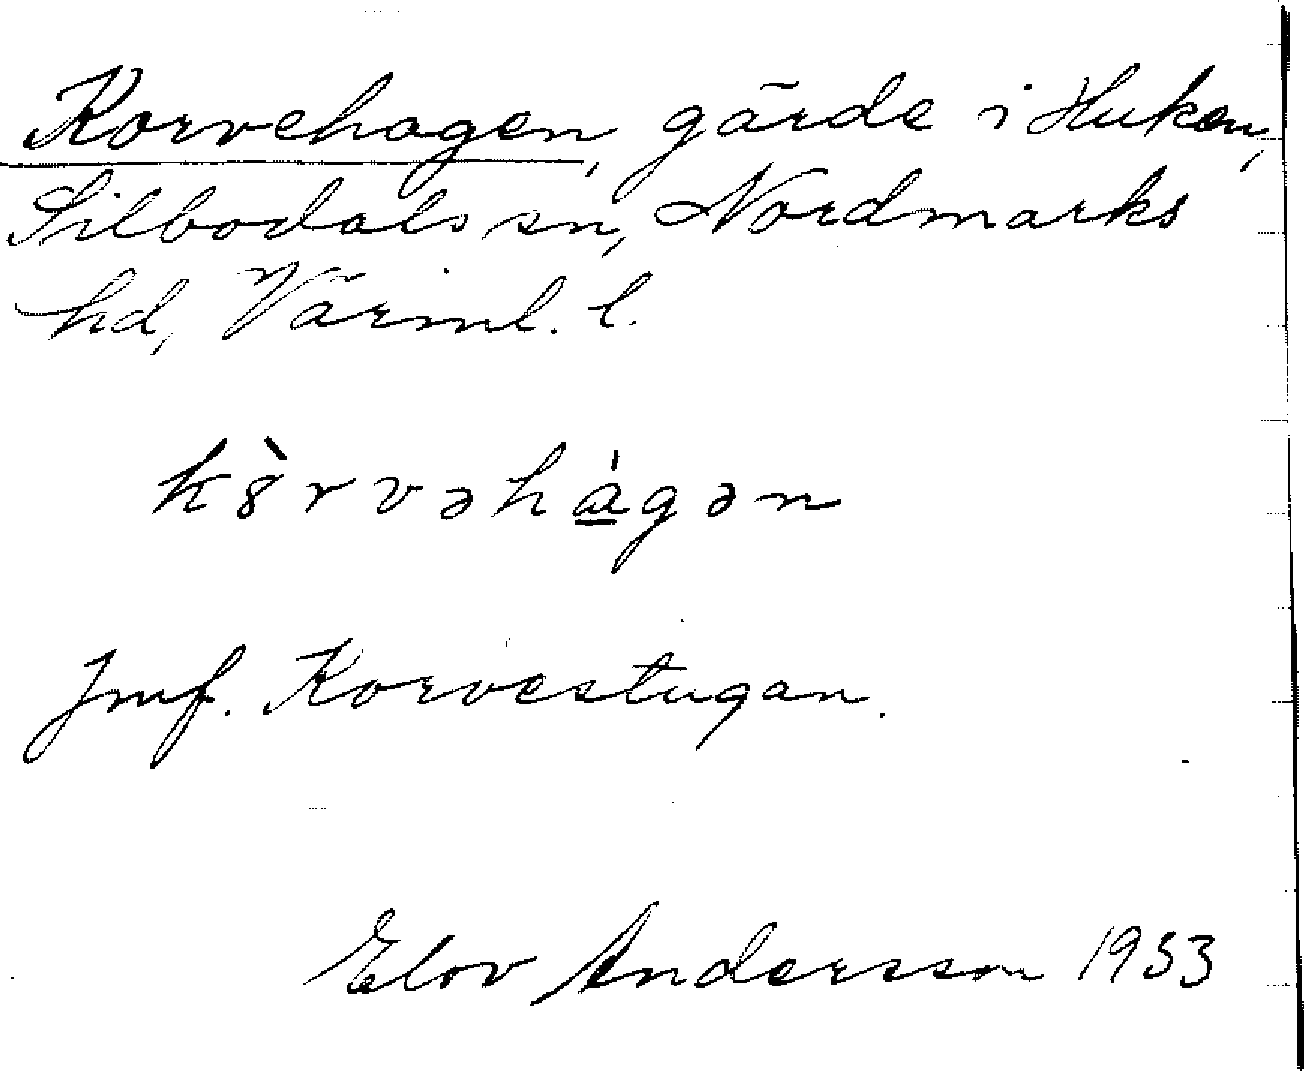 Korvehagen, gärde i Huken,
Silbodals sn, Nordmarks
hd, Värml. l.
kȣ̀rvəhа̲́gən
Jmf. Korvestugan.
Elov Andersson 1933